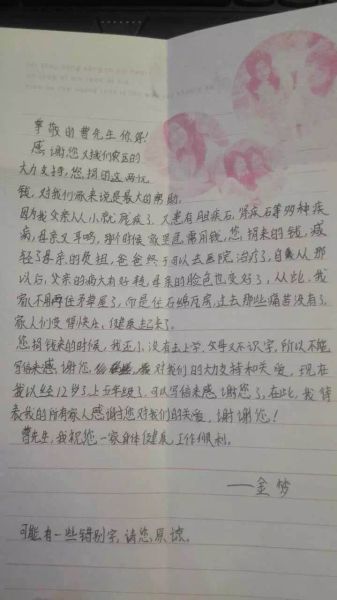 尊敬的曹先生你好!
感谢您对我们灾区的
大力支持,您捐的这两坑
钱,对我们家来说是最大的帮助,
因为我父亲从小就残疾了,又患有胆疾石,肾疾石等多种疾
病,母亲又耳鸣,那个时候家里急需用钱,您捐来的钱,减
轻了母亲的负担,爸爸终于可以去医院治疗了,自从那
以后,父亲的病大有好转,母亲的脸色也变好了,从此,我
家不用再住茅草屋了,而是住石绵瓦房,过去那些痛苦没有了,
家人们变得快乐,健康起来了。
您捐钱来的时候,我还小,没有去上学,父母又不识字,所以不能
写信来感谢您,对我们的大力支持和关爱,现在
我以经12岁了,上五年级了,可以写信来感谢您了,在此,我代
表我的所有家人感谢您对我们的关爱,谢谢您!
曹先生,我祝您一家身体健康,工作顺利。
——金梦
可能有一些错别字,请您原谅。